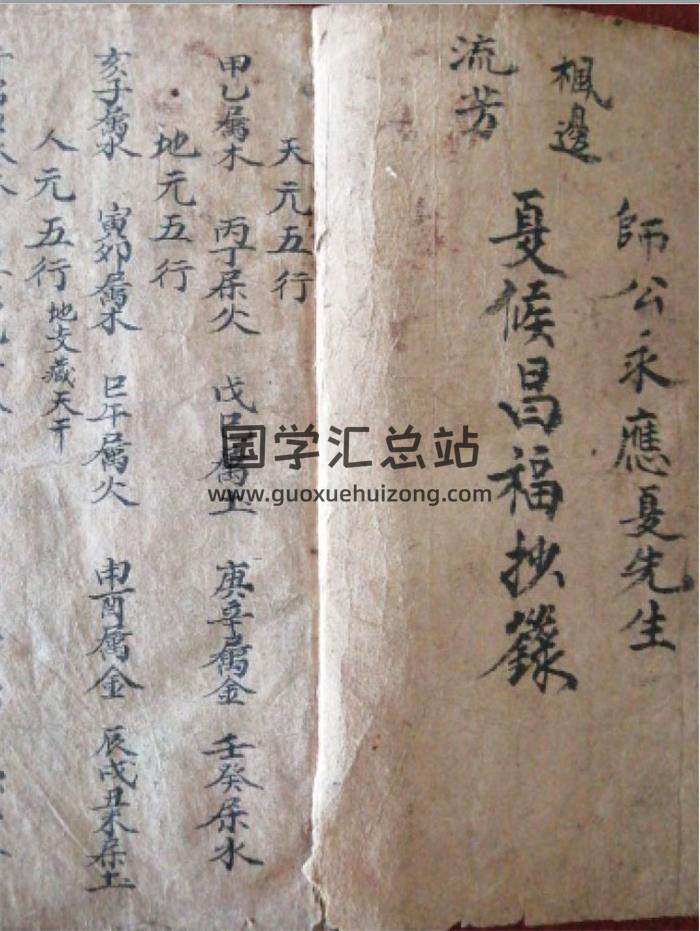 師公永應夏先生
楓邊
夏候昌福抄籙
流芳
天元五行
甲乙屬木 丙丁属火 戊己屬土 庚辛屬金 壬癸属水
地元五行
亥子屬水 寅卯屬木 巳午屬火 申酉属金 辰戌丑未属土
人元五行 地支藏天干
国学汇总站
www.guoxuehuizong.com